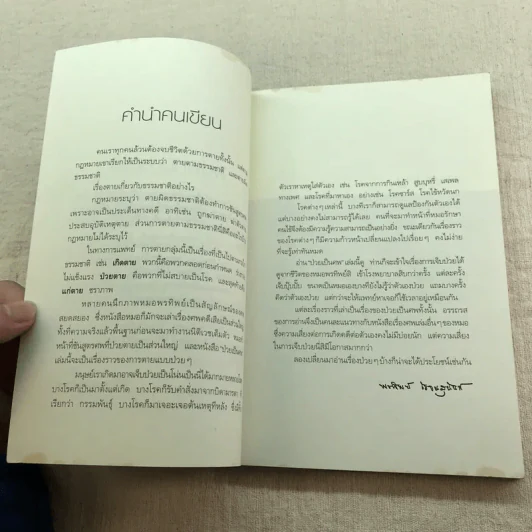 คำนำคนเขียน
คนเราทุกคนล้วนต้องจบชีวิตด้วยการตายทั้งนั้น
กฎหมายเขาเรียกให้เป็นระบบว่า ตายตามธรรมชาติ
ธรรมชาติ
เรื่องตายเกี่ยวกับธรรมชาติอย่างไร
กฎหมายระบุว่า ตายผิดธรรมชาติต้องทำการชันสูตรพลิกศพ
เพราะอาจเป็นประเด็นทางคดี อาทิเช่น ถูกฆ่าตาย
ประสบอุบัติเหตุตาย ส่วนการตายตามธรรมชาติ
กฎหมายไม่ได้ระบุไว้
ในทางการแพทย์ การตายกลุ่มนี้เป็นเรื่องที่เป็นไป
ธรรมชาติ เช่น เกิดตาย พวกนี้คือพวกคลอดก่อนกำหนด
ไม่แข็งแรง ป่วยตาย คือพวกที่ไม่สบายเป็นโรค และสุดท้าย
แก่ตาย ชราภาพ
หลายคนนึกภาพหมอพรทิพย์เป็นสัญลักษณ์ของ
สยดสยอง ซึ่งหนังสือหมอก็มักจะเล่าเรื่องศพคดีเสียเป็นส่วนใหญ่
ทั้งที่ความจริงแล้วพื้นฐานก่อนจะมาทำงานนิติเวชเต็มตัว
หน้าที่ชันสูตรศพที่ป่วยตายเป็นส่วนใหญ่ และหนังสือ
เล่มนี้จะเป็นเรื่องราวของการตายแบบป่วยๆ
มนุษย์เราเกิดมาอาจเจ็บป่วยเป็นโน่นเป็นนี่ได้มากมาย
บางโรคก็เป็นมาตั้งแต่เกิด บางโรคก็รับคำสั่งมาจากบิดามารดา
เรียกว่า กรรมพันธุ์ บางโรคก็มาเจอะเจอต้นเหตุทีหลัง
ตัวเราหาเหตุใส่ตัวเอง เช่น โรคจากการกินเหล้า สูบบุหรี่ เสพผล
ทางเพศ และโรคที่มาหาเอง อย่างเช่น โรคซาร์ส โรคไข้หวัดนก
โรคต่างๆ เหล่านี้ บางทีเราก็สามารถดูแลป้องกันตัวเองได้
แต่บางอย่างคงไม่สามารถรู้ได้เลย คนที่จะมาทำหน้าที่หมอรักษา
คนไข้จึงต้องมีความรู้ความสามารถเป็นอย่างยิ่ง ขณะเดียวกันเรื่องราว
ของโรคต่างๆ ก็มีความก้าวหน้าเปลี่ยนแปลงไปเรื่อยๆ คงไม่ง่าย
ที่จะรู้เท่าทันหมด
อ่าน 'ป่วยเป็นศพ' เล่มนี้ดู ท่านก็จะเข้าใจเรื่องการเจ็บป่วยได้
ดูจากชีวิตของหมอพรทิพย์สิ เข้าโรงพยาบาลสิบกว่าครั้ง แต่ละครั้ง
เจ็บปุ๊บปั๊บ ขนาดเป็นหมอเองบางทียังไม่รู้ตัวเองว่าป่วย แถมบางครั้ง
คิดว่าตัวเองป่วย แต่กว่าจะให้แพทย์หาเจอก็ใช้เวลาอยู่เหมือนกัน
แต่ละเรื่องราวที่เล่าเป็นเรื่องของคนป่วยที่เป็นศพทั้งนั้น อรรถรส
ของการอ่านจึงเป็นคนละแนวทางกับหนังสือเรื่องศพเล่มอื่นๆ ของหมอ
ซึ่งความตายเหล่านั้นบางทีก็ห่างไกลตัวคนดีคงจะไม่มีบ่อยนัก แต่ความเสี่ยง
ในการเจ็บป่วยนี่สิมีโอกาสมากกว่า
ลองเปลี่ยนมาอ่านเรื่องป่วยๆ บ้างก็น่าจะได้ประโยชน์เช่นกัน